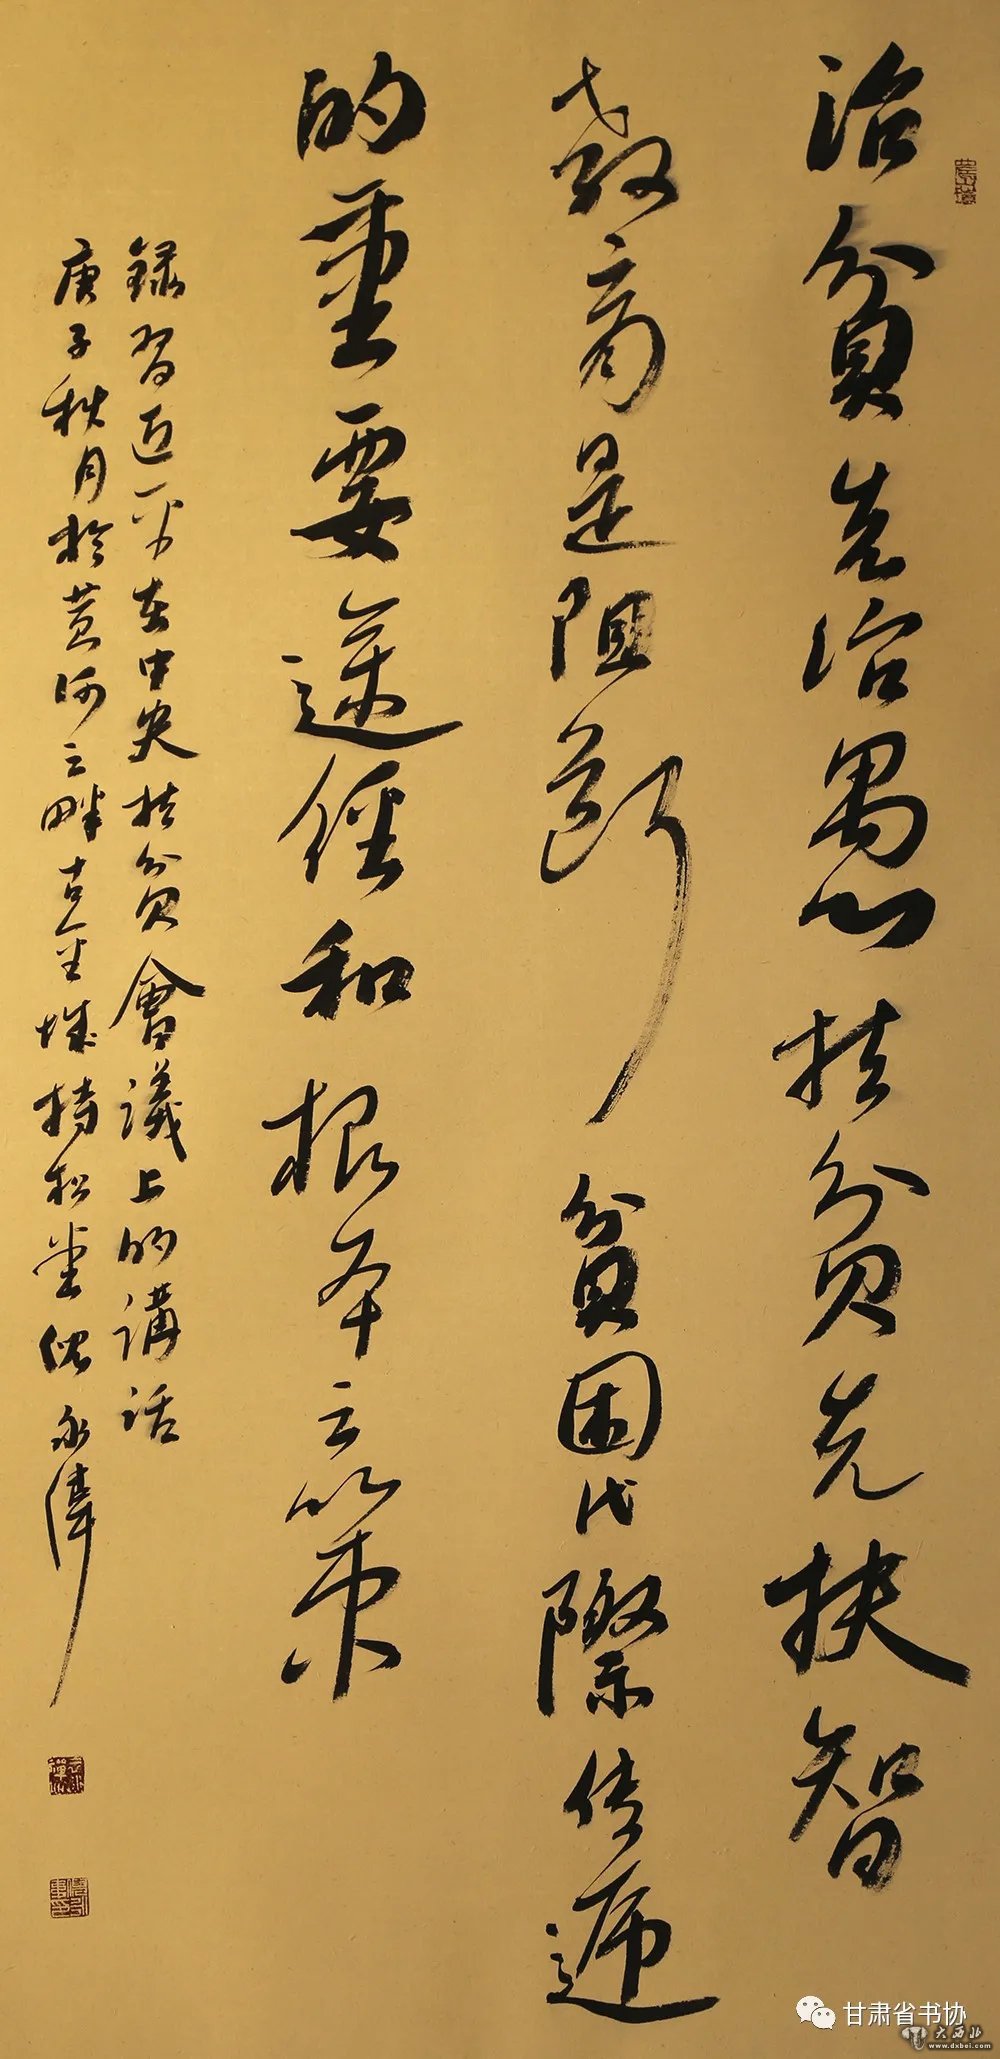 治貧先治愚扶貧先扶智
教育是阻斷貧困代際传遞
的重要途徑和根本之策
録習近平在中央扶貧會議上的講話
庚子秋月於黄河之畔古金城持松堂永偉
甘肃省书协
大西北
www.dxbei.com